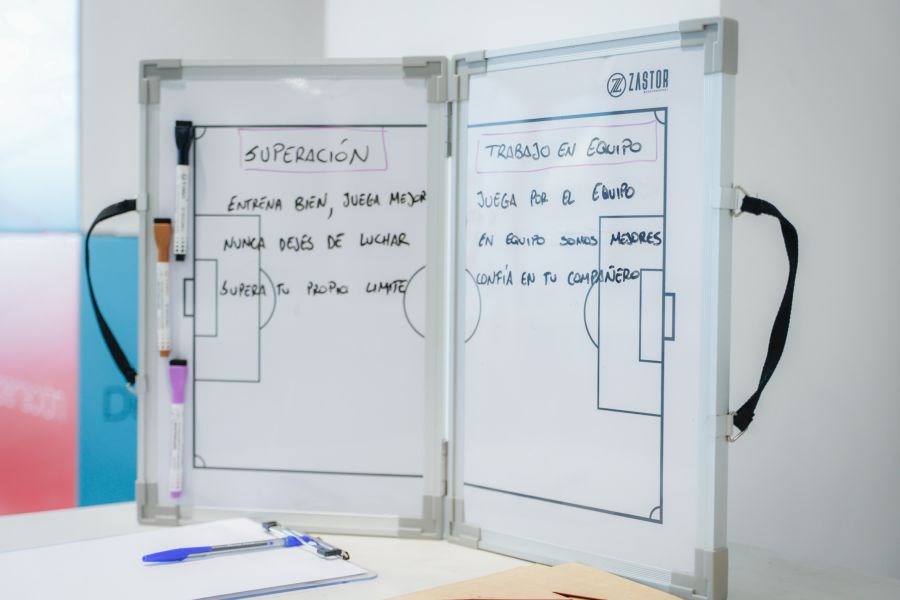 SUPERACIÓN
ENTRENA BIEN, JUEGA MEJOR
NUNCA DEJES DE LUCHAR
SUPERA TU PROPIO LIMITE
ZASTOR
TRABAJO EN EQUIPO
JUEGA POR EL EQUIPO
EN EQUIPO SOMOS MEJORES
CONFÍA EN TU COMPAÑERO